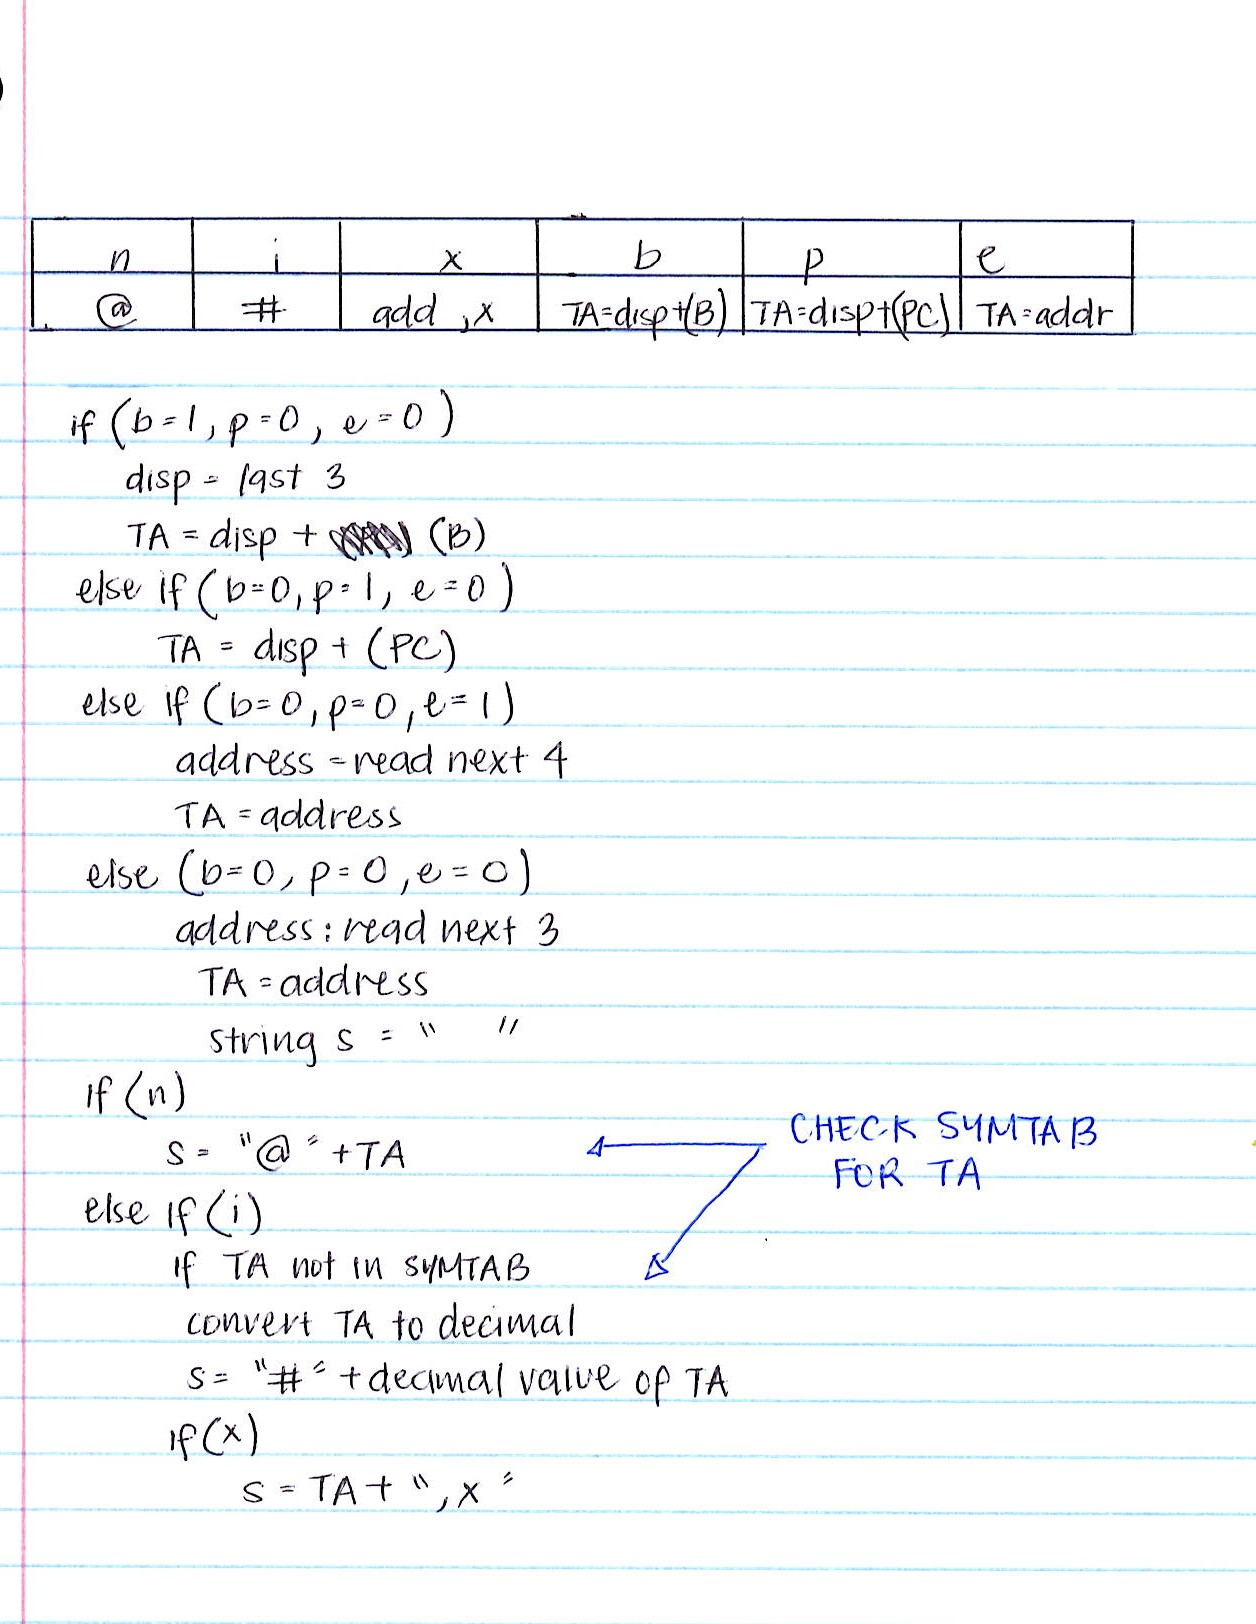 n i x b p e
@ # add ,x TA=disp+(B) TA=disp+(PC) TA=addr
if (b=1, p=0, e=0)
disp = last 3
TA = disp + (B)
else if (b=0, p=1, e=0)
TA = disp + (PC)
else if (b=0, p=0, e=1)
address = read next 4
TA = address
else (b=0, p=0, e=0)
address: read next 3
TA = address
string s = " "
if (n)
s = "@" + TA
CHECK SYMTAB
FOR TA
else if (i)
if TA not in SYMTAB
convert TA to decimal
s = "#" + decimal value of TA
if (x)
s = TA + ",x"